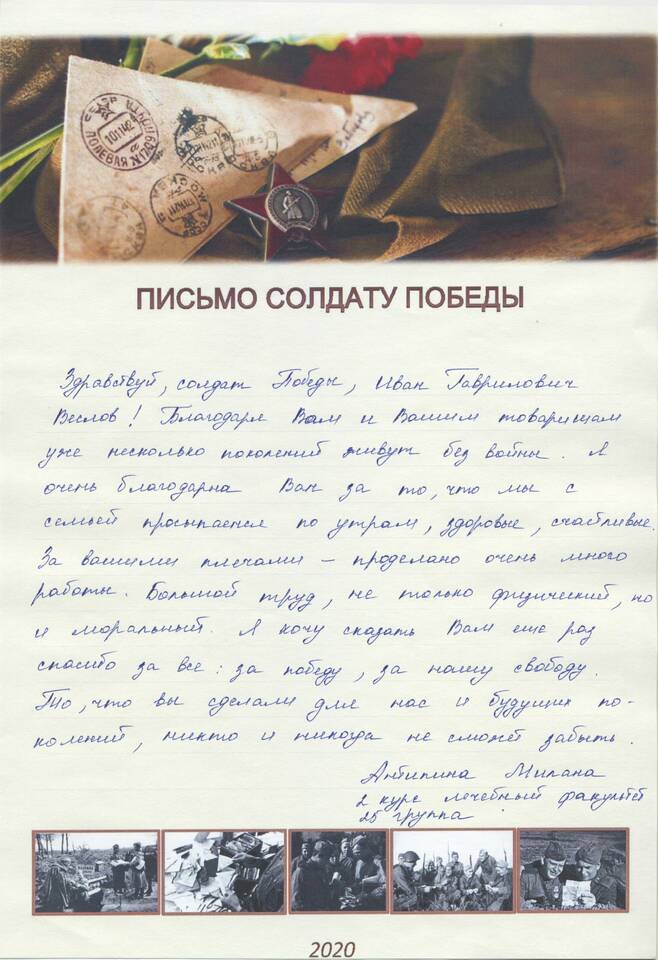 ПОЛЕВАЯ ПОЧТА
ПИСЬМО СОЛДАТУ ПОБЕДЫ
Здравствуй, солдат Победы, Иван Гаврилович
Веслов! Благодаря Вам и Вашим товарищам
уже несколько поколений живут без войны. Я
очень благодарна Вам за то, что мы с
семьей просыпаемся по утрам, здоровые, счастливые.
За вашими плечами – проделано очень много
работы. Большой труд, не только физический, но
и моральный. Я хочу сказать Вам еще раз
спасибо за все: за победу, за нашу свободу.
То, что вы сделали для нас и будущих по-
колений, никто и никогда не сможет забыть.
Антипина Милана
2 курс лечебный факультет
25 группа
2020